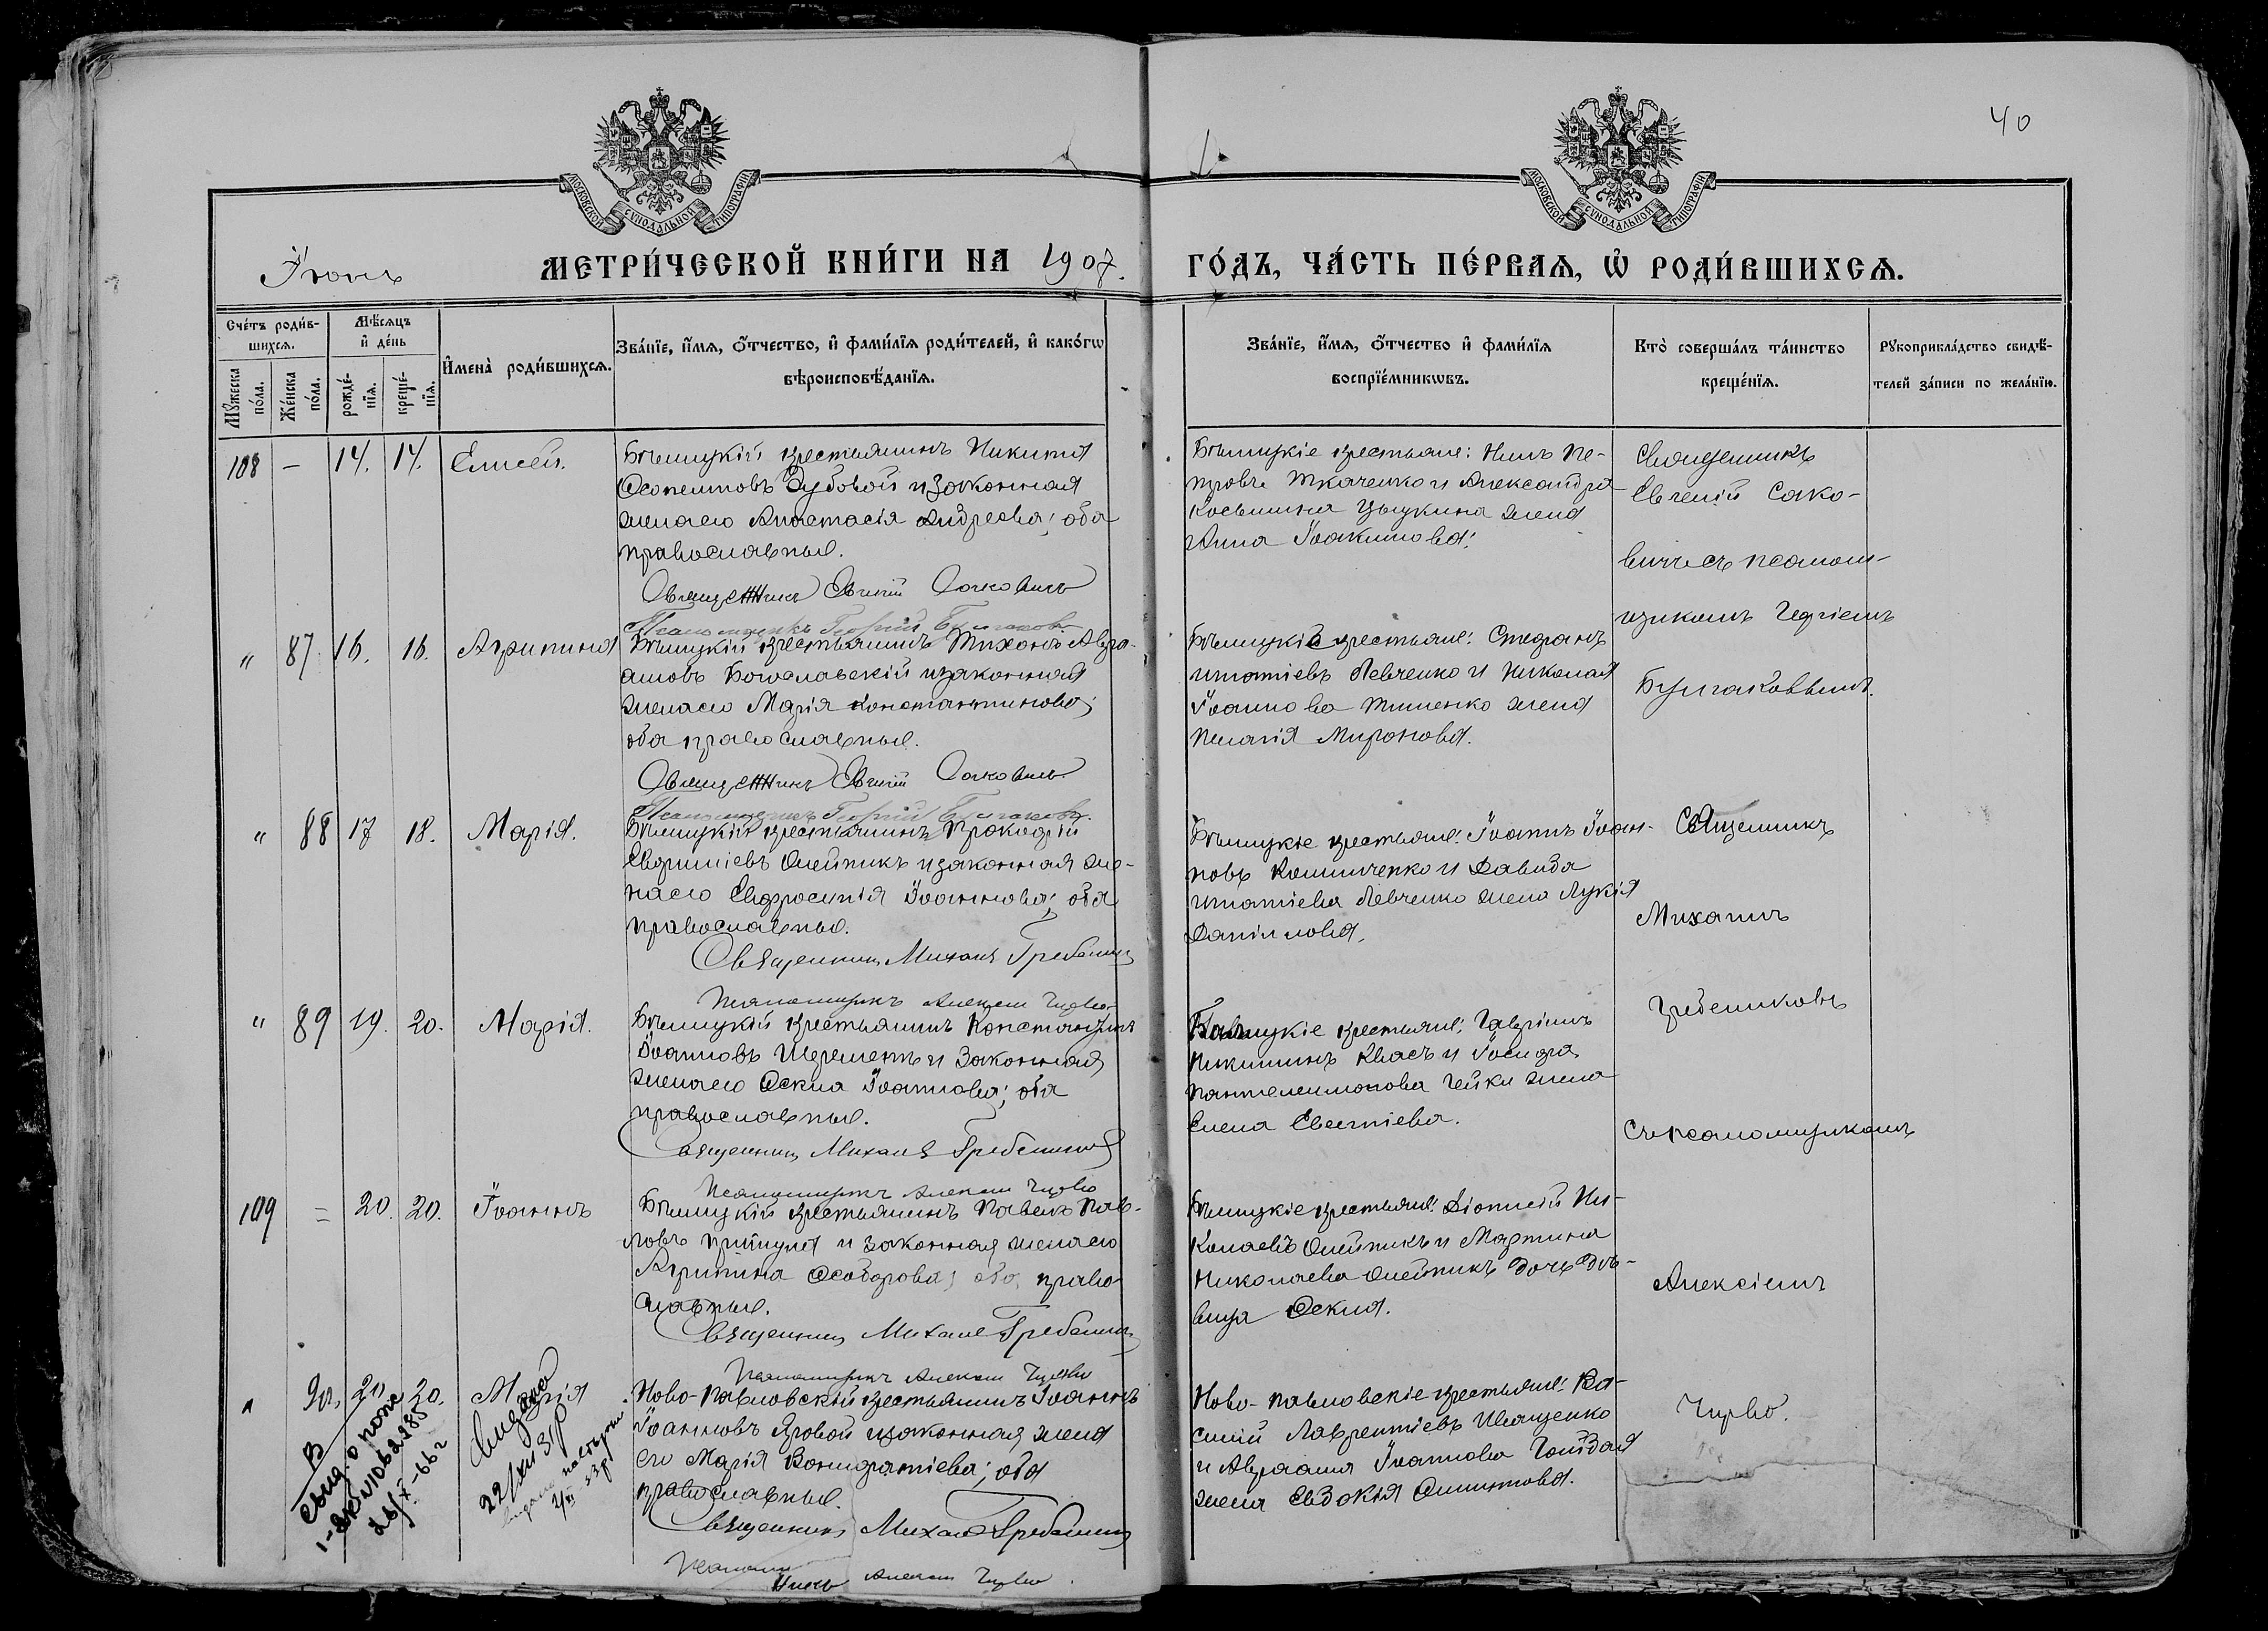 40
МОСКОВСКОЙ СѴНОДАЛЬНОЙ ТИПОГРАФІИ
МОСКОВСКОЙ СѴНОДАЛЬНОЙ ТИПОГРАФІИ
Іюнь
МЕТРИ́ЧЕСКОЙ КНИ́ГИ НА 1907.
ГО́ДЪ, ЧА́СТЬ ПЕ́РВАѦ, Ѡ҆ РОДИ́ВШИХСѦ.
Сче́тъ роди́в-
шихсѧ.
Мѣ́сѧцъ
и҆ де́нь
Мꙋ́жеска
по́ла.
Же́нска
по́ла.
рожде́-
нїѧ.
креще́-
нїѧ.
И҆мена̀ роди́вшихсѧ.
Зва́нїе, и҆́мѧ, ѻ҆́тчество, и҆ фами́лїѧ роди́телей, и҆ како́гѡ
вѣроисповѣ́данїѧ.
Зва́нїе, и҆́мѧ, ѻ҆́тчество и҆ фами́лїѧ
воспрїе́мникѡвъ.
Кто̀ соверша́лъ та́инство
креще́нїѧ.
Рꙋкоприкла́дство свидѣ́-
телей за́писи по жела́нїю.
108 – 14. 14. Елисей.
Бѣлицкій крестьянинъ Никита
Ѳеопемптовъ Дубовой и законная
жена его Анастасія Андреева; оба
православные.
Священникъ Евгеній Саковичъ
Псаломщикъ Георгій Булгаковъ
Бѣлицкіе крестьяне: Нилъ Пе-
тровъ Ткаченко и Александра
Косьмина Цыцкина жена
Анна Іоакимова.
Священникъ
Евгеній Сако-
вичъ съ псалом-
щикомъ Георгіемъ
Булгаковымъ.
" 87. 16. 16. Агрипина
Бѣлицкій крестьянинъ Тихонъ Авра-
амовъ Богославскій и законная
жена его Марія Константинова;
оба православные.
Священникъ Евгеній Саковичъ
Псаломщикъ Георгій Булгаковъ.
Бѣлицкіе крестьяне: Стефанъ
Игнатіевъ Левченко и Николая
Іоаннова Тименко жена
Пелагія Миронова.
" 88 17 18. Марія.
Бѣлицкій крестьянинъ Прокофій
Евфиміевъ Олейникъ и законная же-
на его Евфросинія Іоаннова; оба
православные.
Священникъ Михаилъ Гребенниковъ
Псаломщикъ Алексій Чирво
Бѣлицкіе крестьяне: Іоаннъ Іоан-
новъ Климченко и Давида
Игнатіева Левченко жена Лукія
Даніилова.
Священникъ
Михаилъ
Гребениковъ
съ псаломщикомъ
Алексіемъ
Чирво.
" 89 19. 20. Марія.
Бѣлицкій крестьянинъ Константинъ
Іоанновъ Шереметъ и законная
жена его Ѳекла Іоаннова; оба
православные.
Священникъ Михаилъ Гребенниковъ
Псаломщикъ Алексій Чирво
Бѣлицкіе крестьяне: Гавріилъ
Никитинъ Квасъ и Іосифа
Пантелеимонова Чейки жена
Елена Евсегніева.
109 = 20. 20. Іоаннъ
Бѣлицкій крестьянинъ Павелъ Пав-
ловъ и законная жена его
Агрипина Ѳеодорова; оба право-
славные.
Священникъ Михаилъ Гребенниковъ
Псаломщикъ Алексій Чирво
Бѣлицкіе крестьяне: Діонисій Ни-
колаевъ Олейникъ и Мартина
Николаева Олейникъ дочь дѣ-
вица Ѳекла.
" 90. 20 20. Марія
Ново-Павловскій крестьянинъ Іоаннъ
Іоанновъ Яровой и законная жена
его Марія Кондратіева; оба
православные.
Священникъ Михаилъ Гребенниковъ
Псаломщикъ Алексій Чирво.
Ново-Павловскіе крестьяне: Ва-
силій Лаврентіевъ Иващенко
и Авраама Іоаннова
жена Евдокія
В
свид. о рожд
26/X-66 г
Видано
22/XII 51р